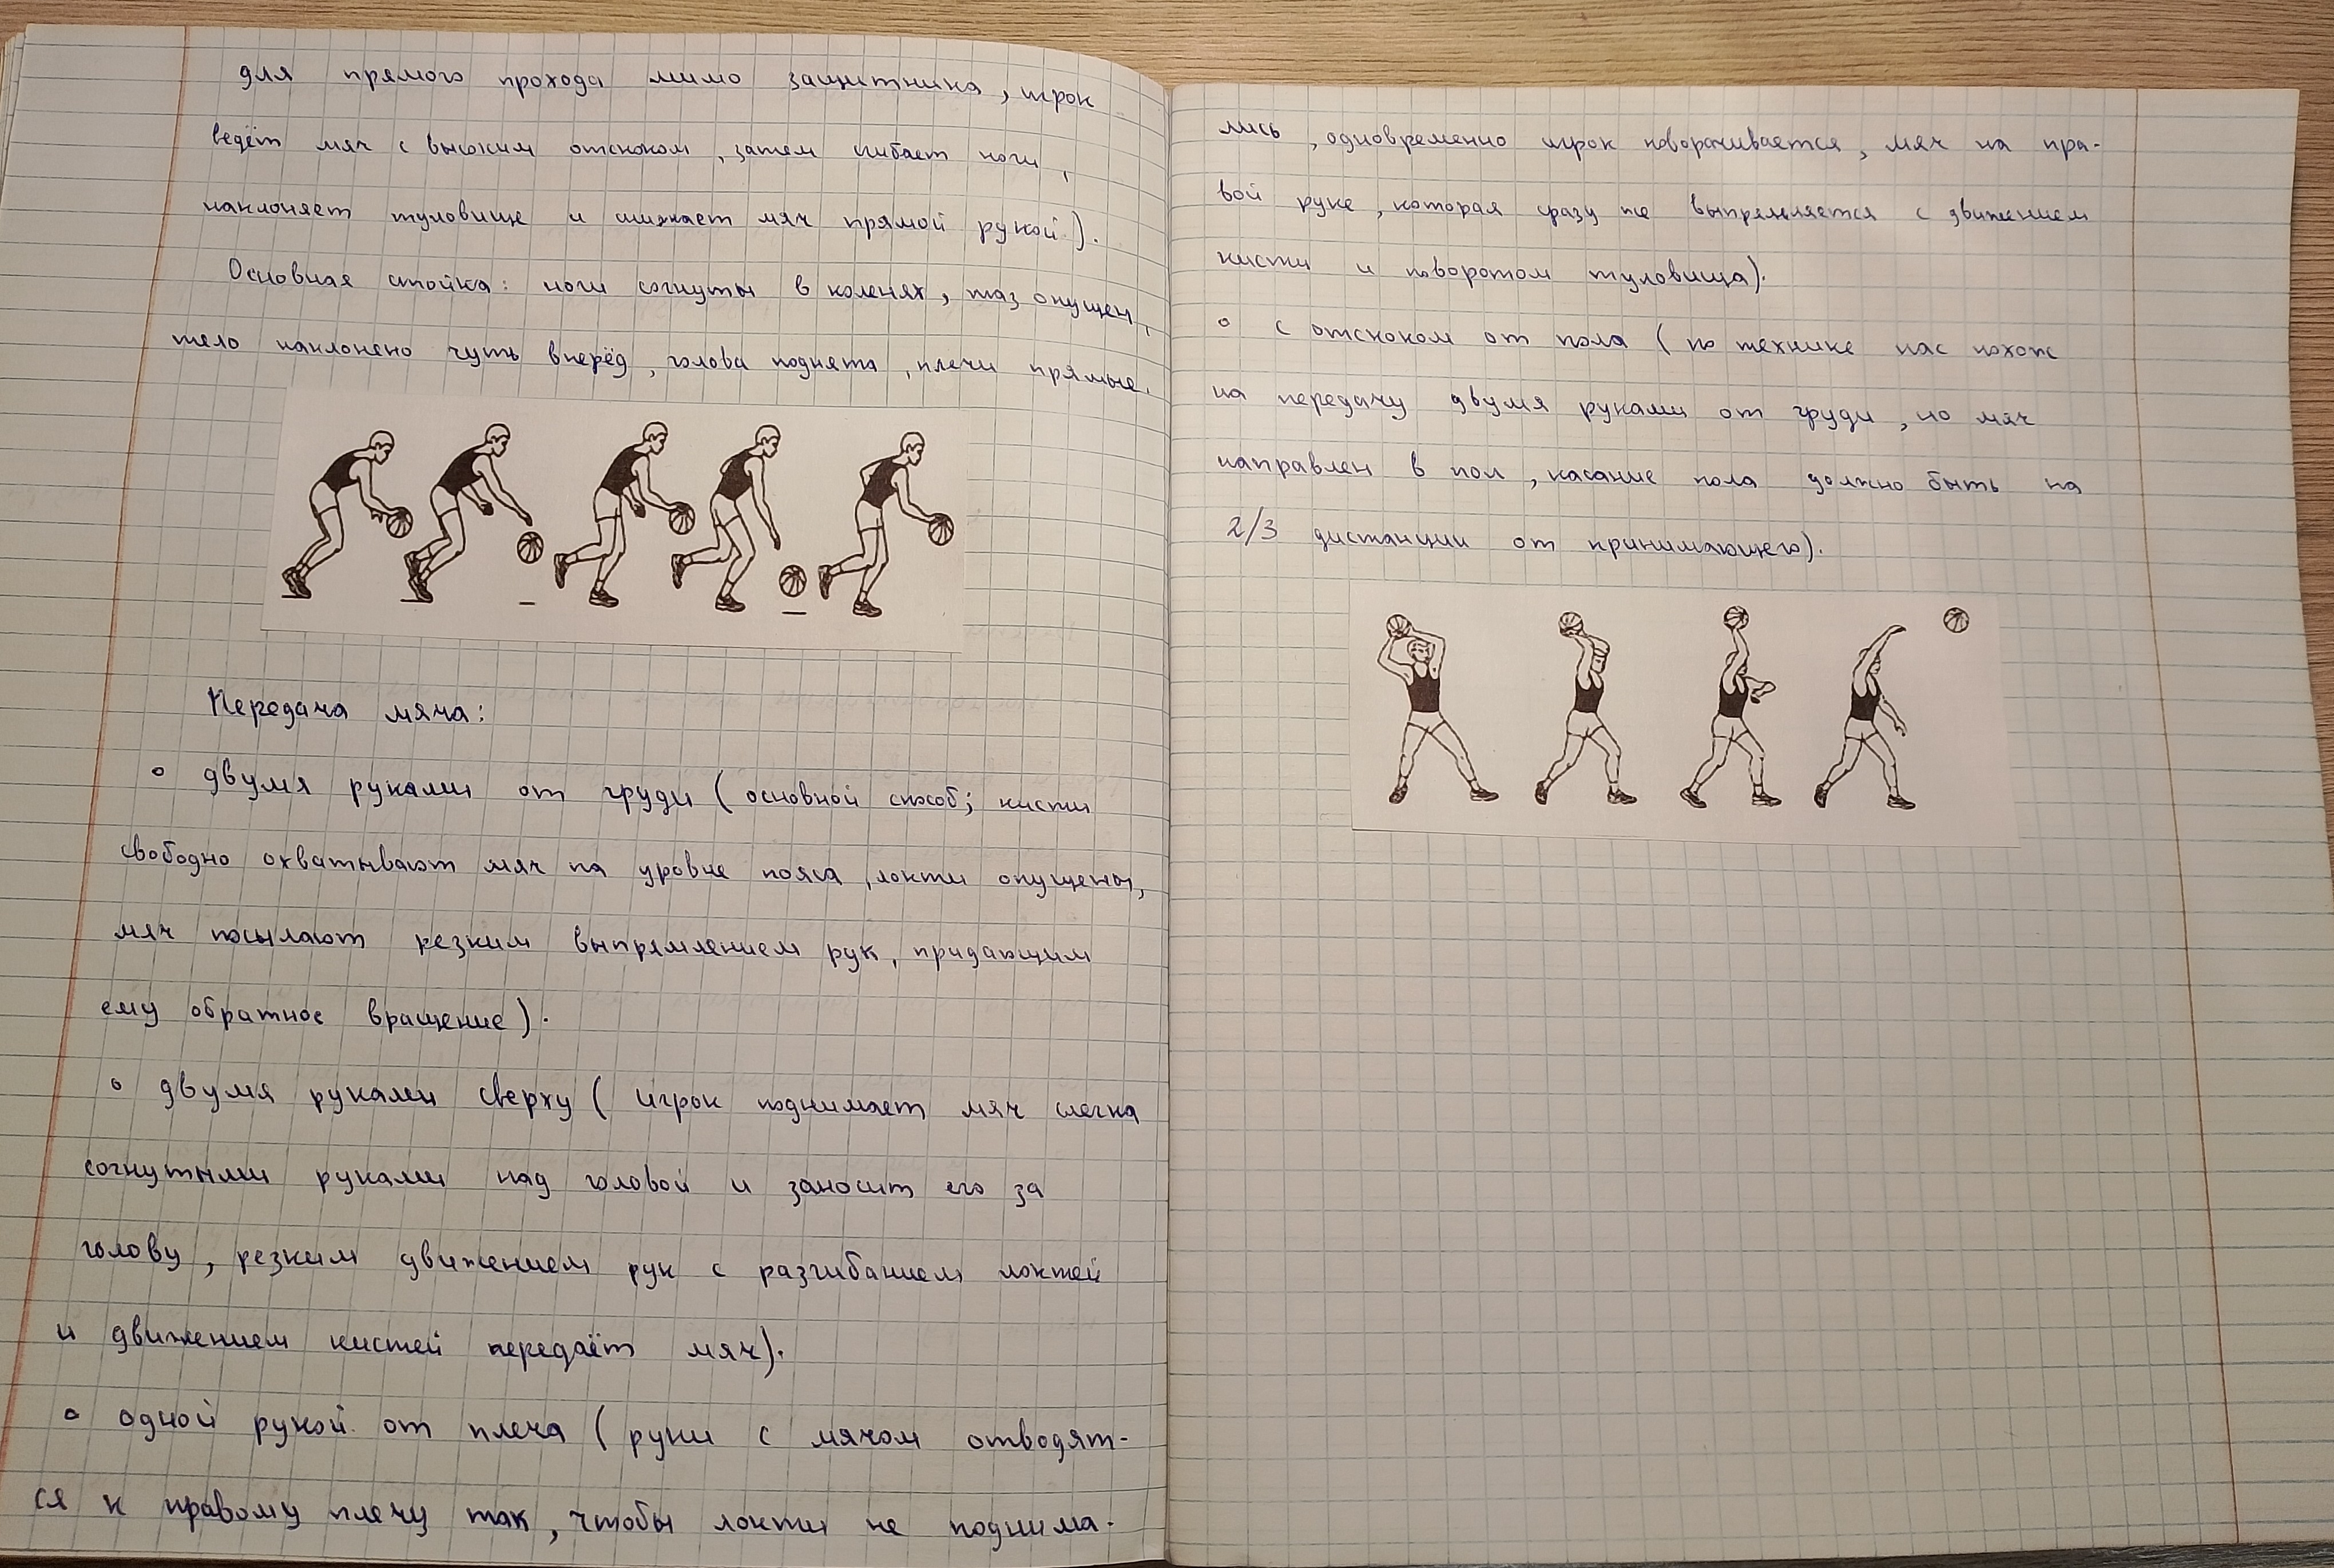 для прямого прохода мимо защитника, игрок
ведёт мяч с высоким отскоком, затем сгибает ноги,
наклоняет туловище и снижает мяч прямой рукой).
Основная стойка: ноги согнуты в коленях, таз опущен,
тело наклонено чуть вперёд, голова поднята, плечи прямые.
Передача мяча:
∘ двумя руками от груди (основной способ; кисти
свободно охватывают мяч на уровне пояса, локти опущены,
мяч посылают резким выпрямлением рук, придающим
ему обратное вращение).
∘ двумя руками сверху (игрок поднимает мяч слегка
согнутыми руками над головой и заносит его за
голову, резким движением рук с разгибанием локтей
и движением кистей передаёт мяч).
∘ одной рукой от плеча (руки с мячом отводят-
ся к правому плечу так, чтобы локти не поднима-
лись, одновременно игрок поворачивается, мяч на пра-
вой руке, которая сразу же выпрямляется с движением
кисти и поворотом туловища).
∘ с отскоком от пола (по технике пас похож
на передачу двумя руками от груди, но мяч
направлен в пол, касание пола должно быть на
2/3 дистанции от принимающего).